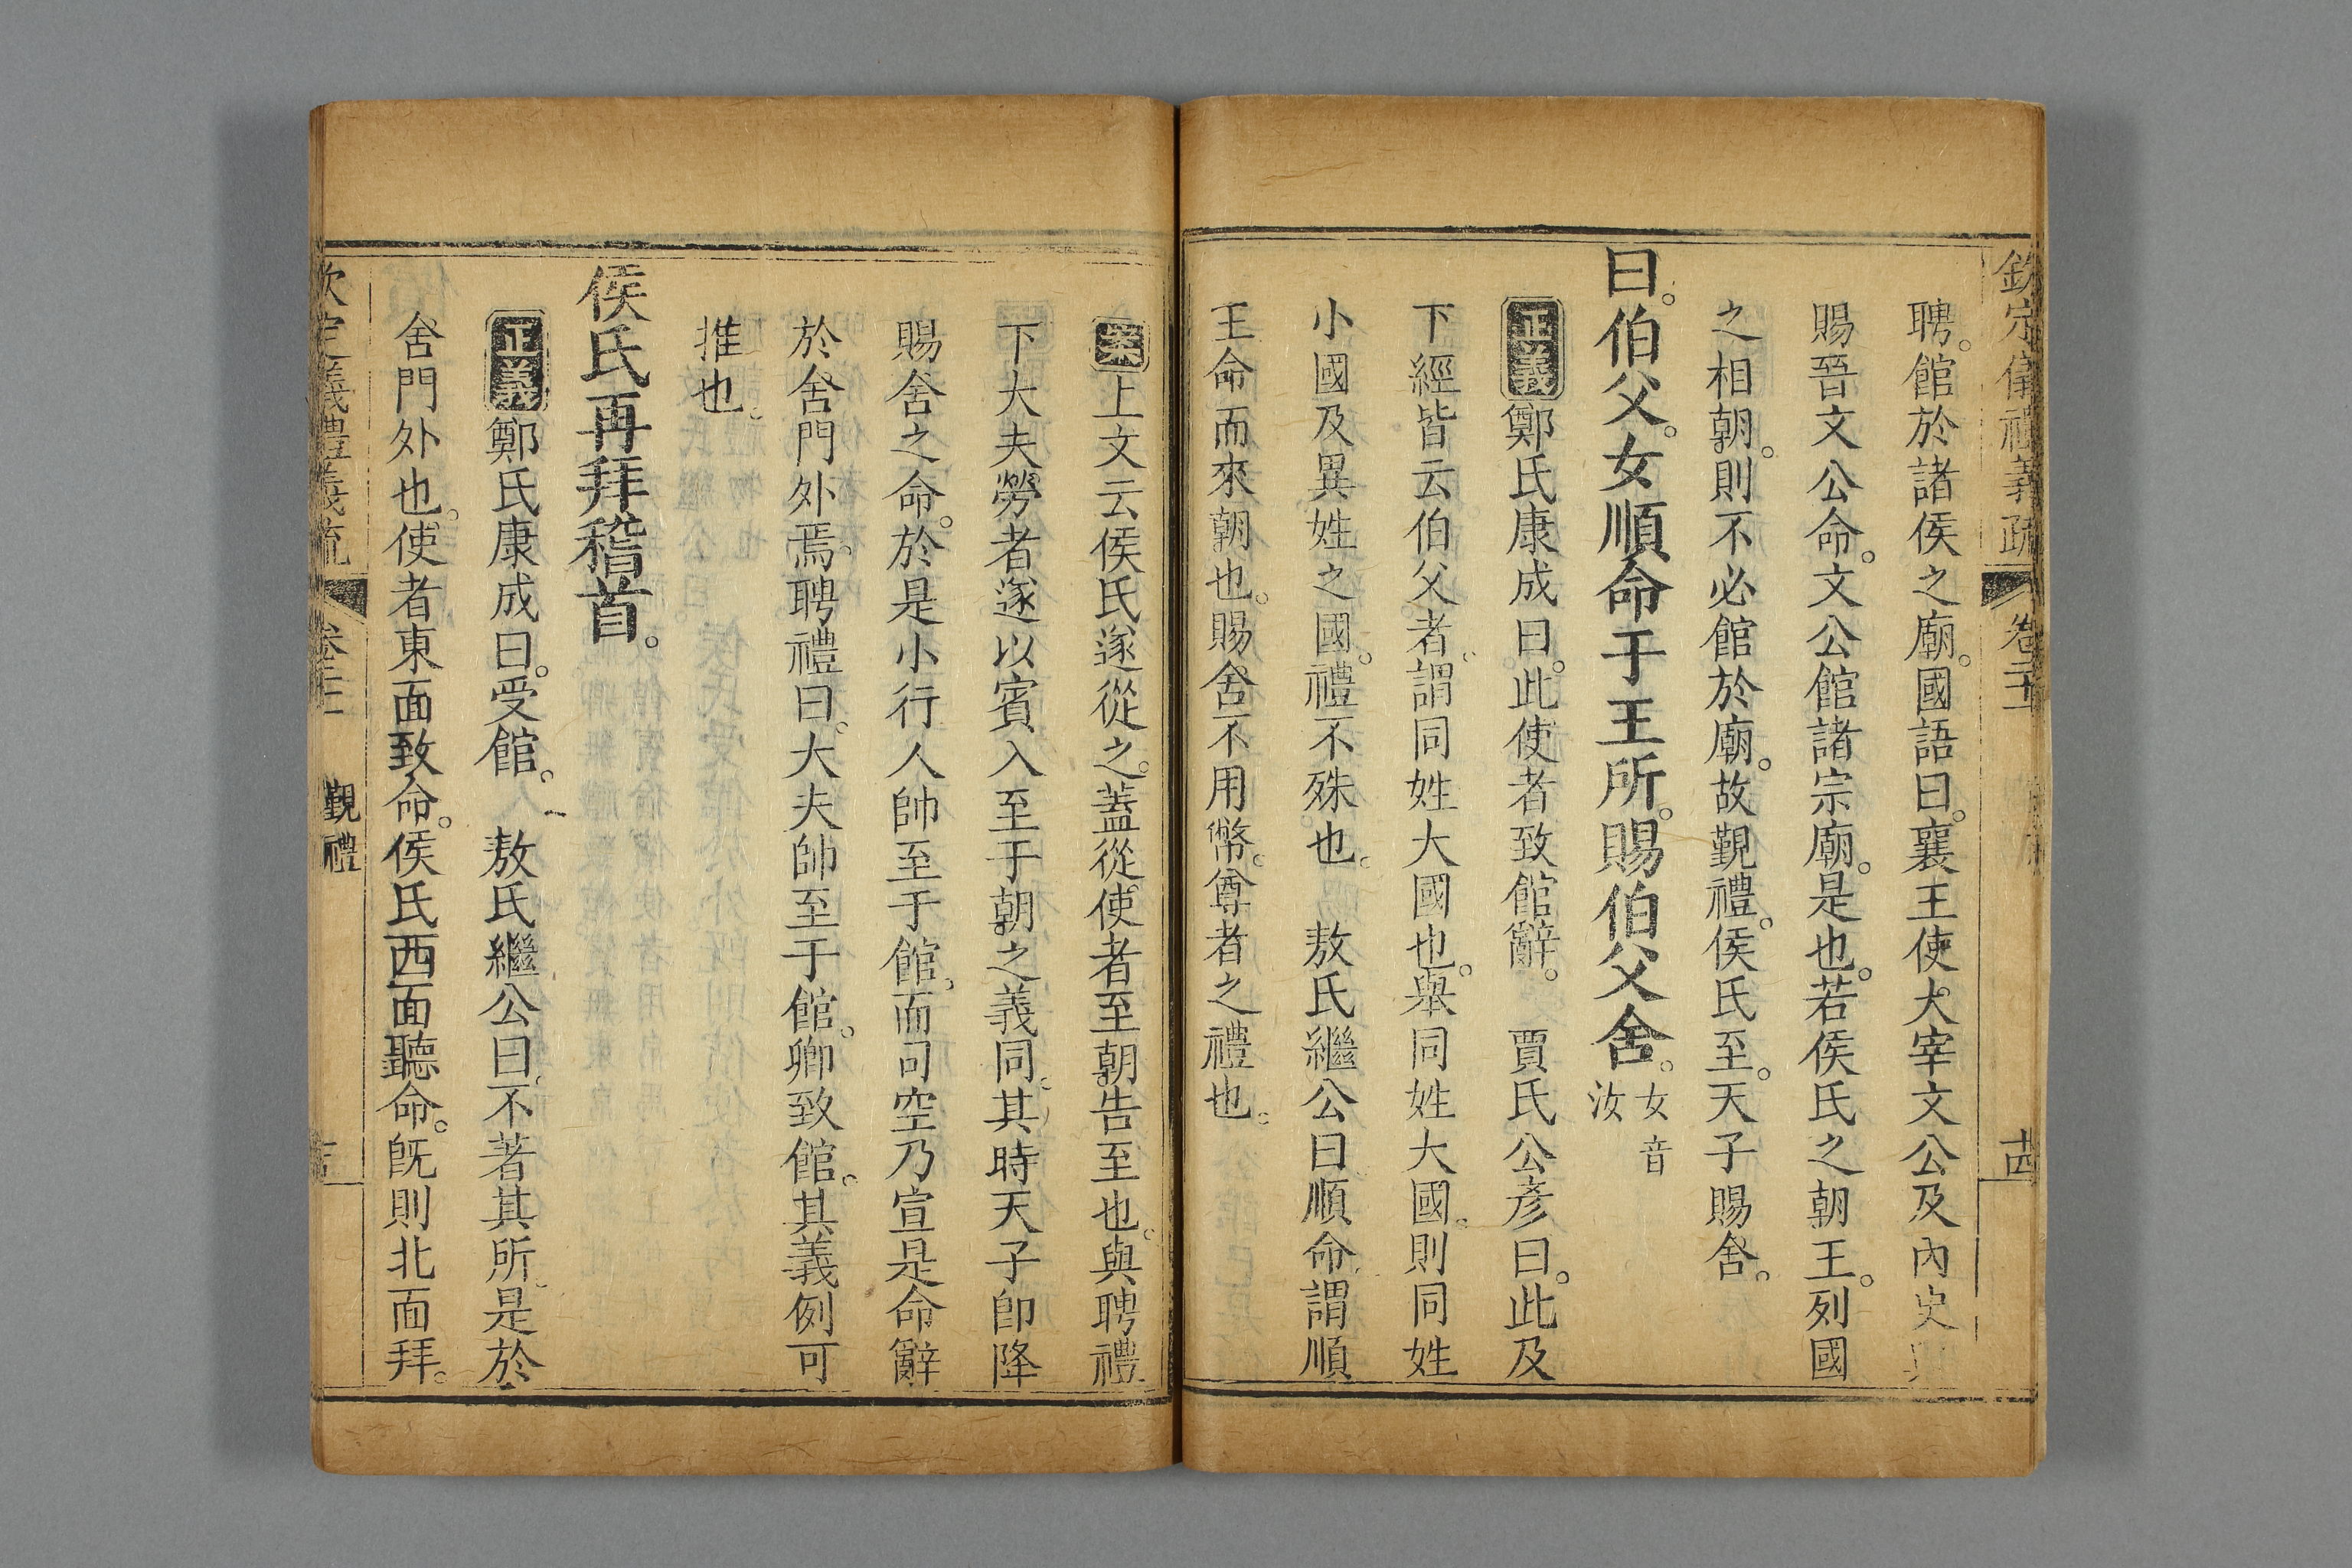 欽定儀禮義疏 卷二十 十四
聘。館於諸侯之廟。國語曰。襄王使大宰文公及內史興
賜晉文公命。文公館諸宗廟。是也。若侯氏之朝王。列國
之相朝。則不必館於廟。故覲禮。侯氏至。天子賜舍。
曰。伯父。女順命于王所。賜伯父舍。女音汝
正義鄭氏康成曰。此使者致館辭。 賈氏公彥曰。此及
下經皆云伯父者。謂同姓大國也。舉同姓大國。則同姓
小國及異姓之國。禮不殊也。 敖氏繼公曰順命。謂順
王命而來朝也。賜舍不用幣。尊者之禮也。
案上文云侯氏遂從之。蓋從使者至朝告至也。與聘禮
下大夫勞者遂以賓入至于朝之義同。其時天子卽降
賜舍之命。於是小行人帥至于館。而司空乃宣是命辭
於舍門外焉。聘禮曰。大夫帥至于館。卿致館。其義例可
推也。
侯氏再拜稽首。
正義鄭氏康成曰。受館。 敖氏繼公曰。不著其所。是於
舍門外也。使者東面致命。侯氏西面聽命。旣則北面拜。
欽定義禮義疏 覲禮